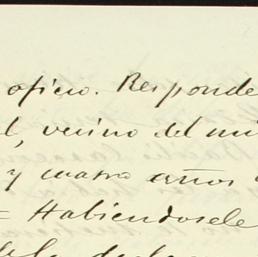 oficio. Responde
l, vecino del mi
y cuatro años
= Habiendosele